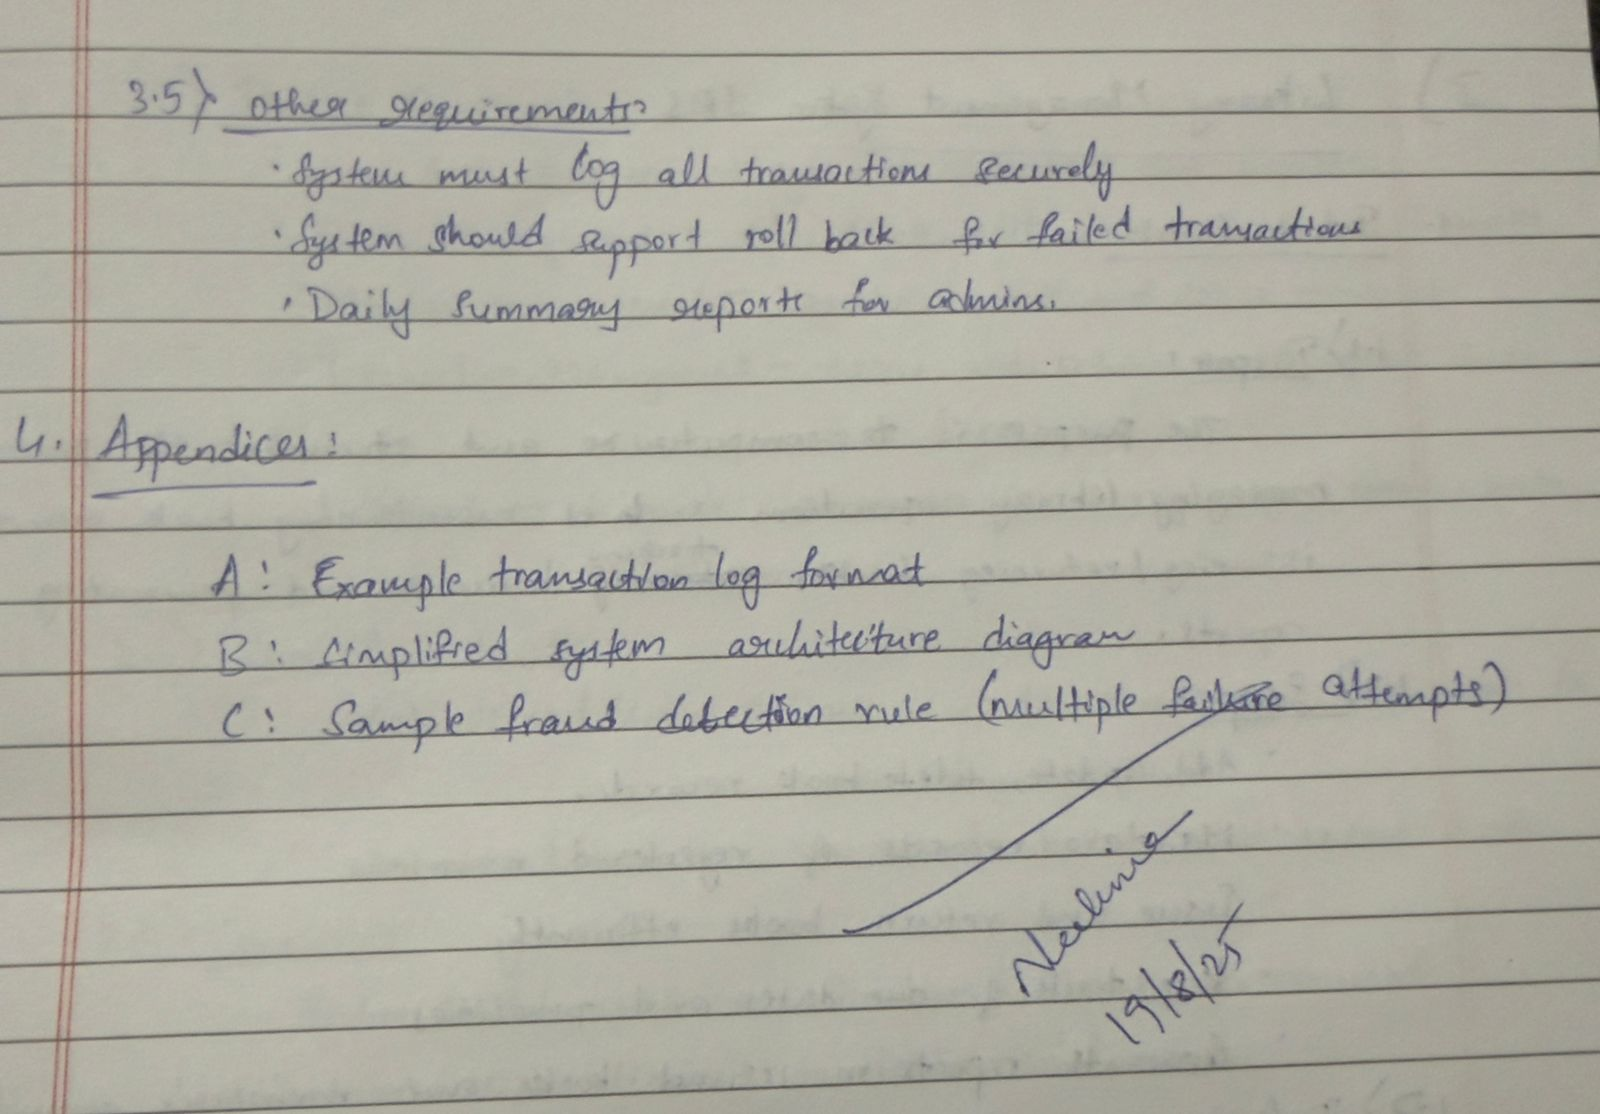 3.5) Other requirements
· System must log all transactions securely
· System should support roll back for failed transactions
· Daily summary reports for admins.
4. Appendices:
A: Example transaction log format
B: Simplified system architecture diagram
C: Sample fraud detection rule (multiple failure attempts)
19/8/25